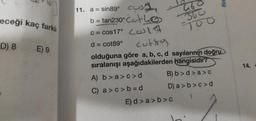 eceği kaç farklı
D) 8 E) 9
11. a = sin89°
b = tan230°
c = cos17°
d = cot89°
olduğuna göre a, b, c, d sayılarının doğru
sıralanışı aşağıdakilerden hangisidir?
A) b > a > c > d B) b > d > a > c
C) a > c > b = d D) a > b > c > d
E) d > a > b > c
14.